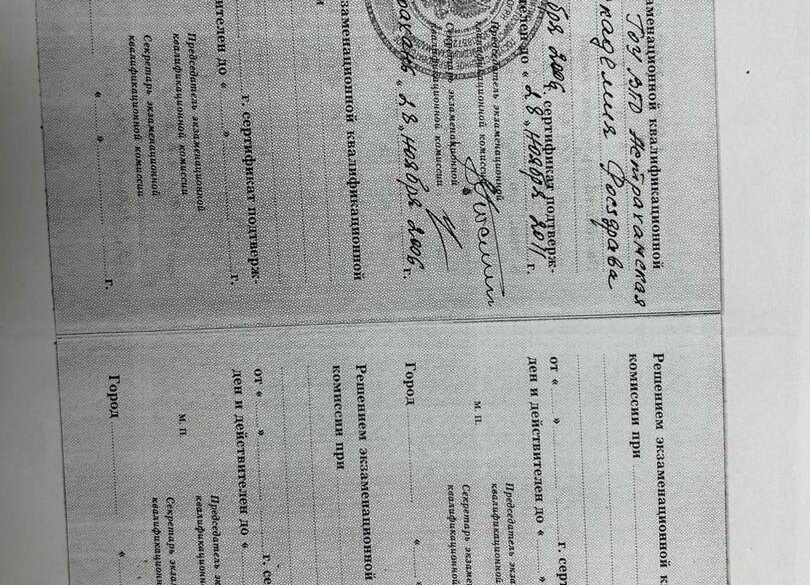 заменационной квалификационной
Гоу ВПО Астраханская
академия Росздрава
ября 2006 г. сертификат подтверж-
телен до « 28 » ноября 2011 г.
Председатель экзаменационной
квалификационной комиссии
Секретарь экзаменационной
квалификационной комиссии
« 28 » ноября 2006 г.
экзаменационной квалификационной
и
» г. сертификат подтверж-
ителен до « » г.
Председатель экзаменационной
квалификационной комиссии
Секретарь экзаменационной
квалификационной комиссии
« » г.
Решением экзаменационной к
комиссии при
от « » г. сертификат
ден и действителен до « »
М. П.
Председатель экза
квалификационно
Секретарь экзаме
квалификационно
Город «
Решением экзаменационной
комиссии при
от « » г. се
ден и действителен до «
М. П.
Председатель
квалификац
Секретарь экза
квалификационн
Город «